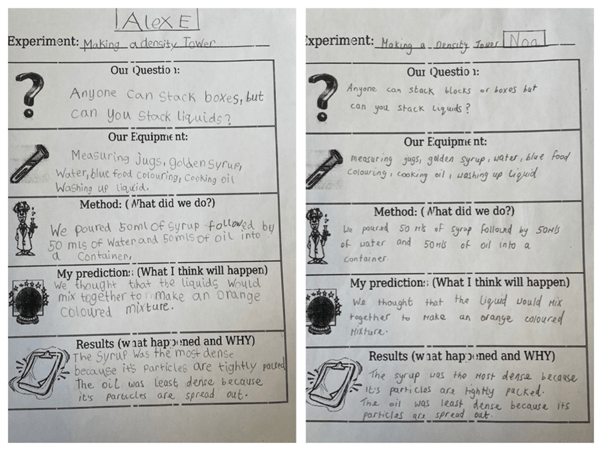 ALEX E
Experiment: Making a density Tower
Our Question:
Anyone can stack boxes, but
can you stack liquids?
Our Equipment:
Measuring jugs, golden syrup,
Water, blue food colouring, cooking oil
Washing up liquid.
Method: (What did we do?)
We poured 50ml of syrup followed by
50 mls of water and 50mls of oil into
a container.
My prediction: (What I think will happen)
We thought that the liquids would
mix together to make an orange
coloured mixture.
Results (what happened and WHY)
The syrup was the most dense
because it's particles are tightly packed
The oil was least dense because
it's particles are spread out.
Experiment: Making a Density Tower Noa
Our Question:
Anyone can stack blocks or boxes but
can you stack liquids?
Our Equipment:
measuring jugs, golden syrup, water, blue food
colouring, cooking oil, washing up liquid
Method: (What did we do?)
We poured 50 mls of syrup followed by 50mls
of water and 50mls of oil into a
container
My prediction: (What I think will happen)
We thought that the liquid would mix
together to make an orange coloured
mixture.
Results (what happened and WHY)
The syrup was the most dense because
it's particles are tightly packed.
The oil was least dense because its
particles are spread out.